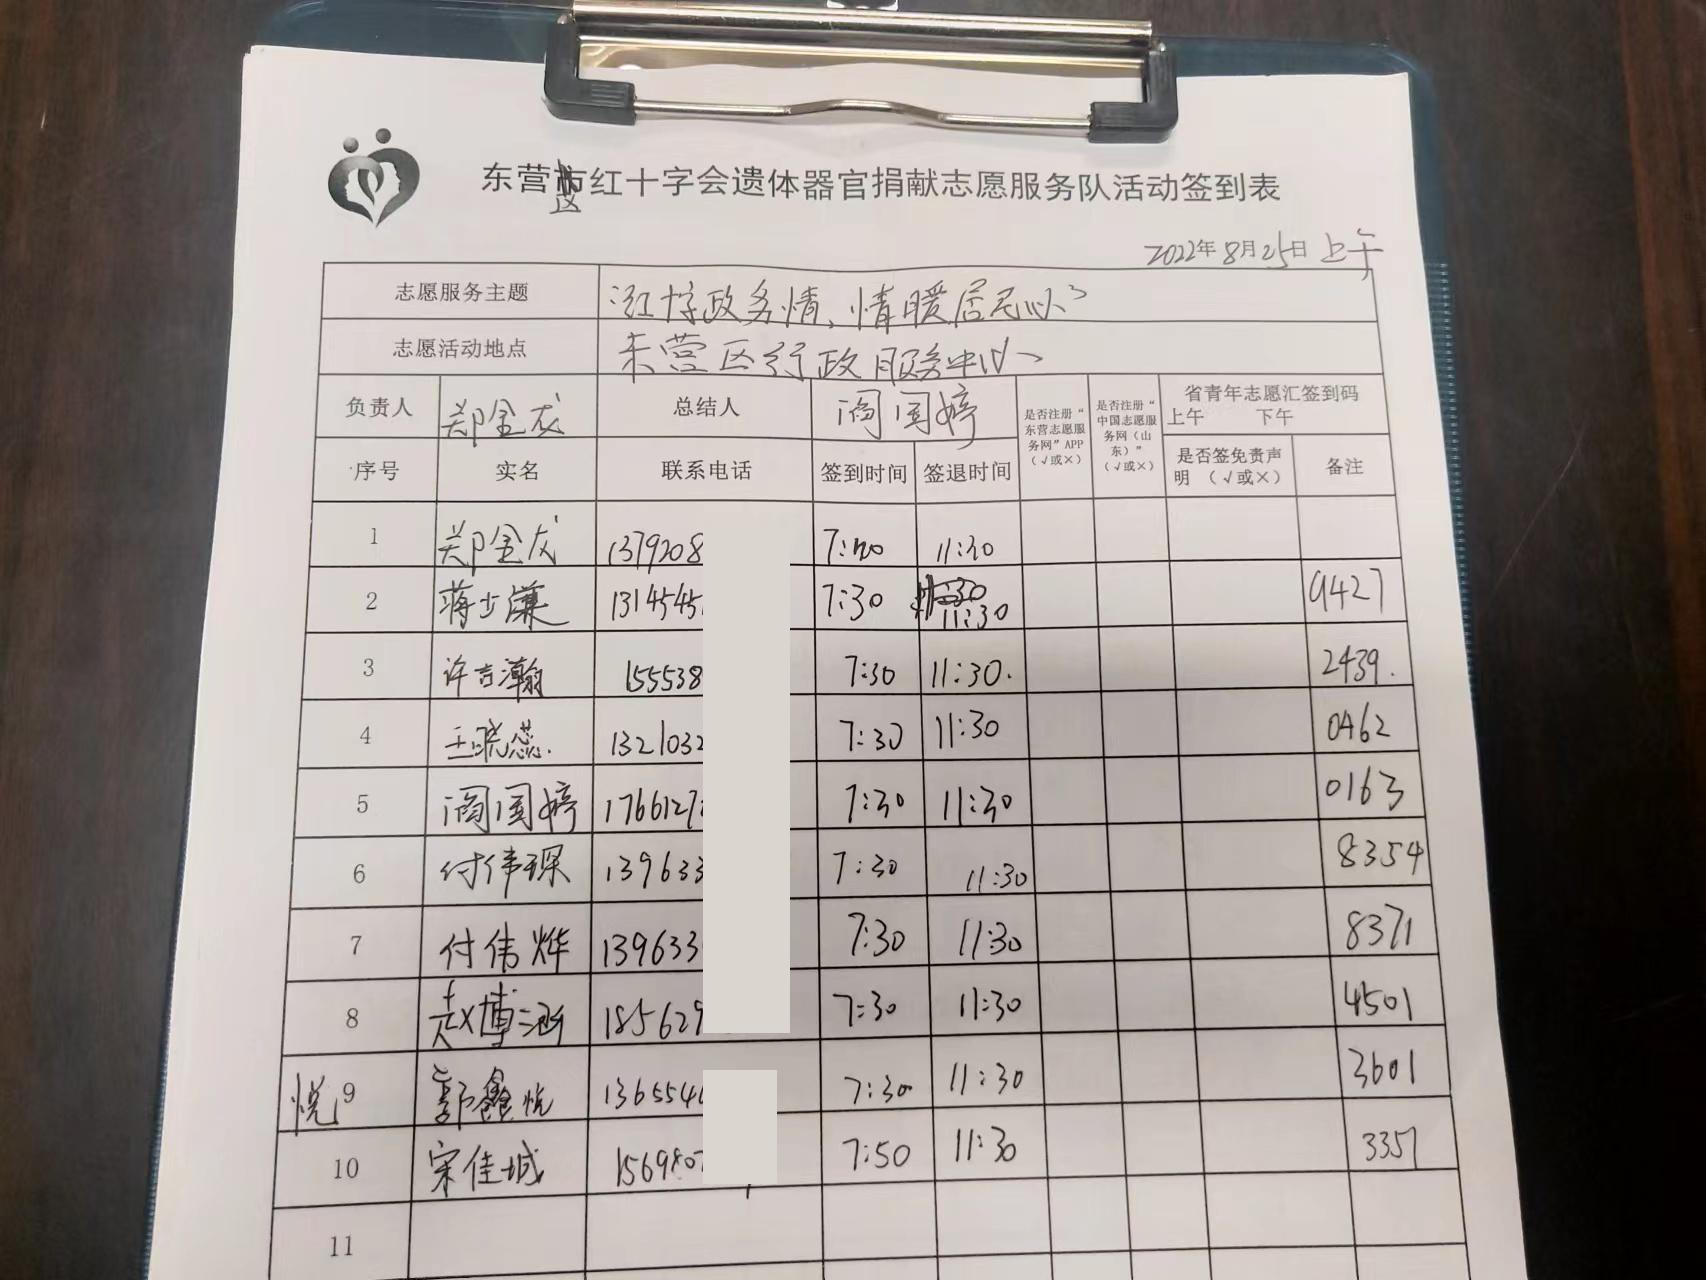 东营区红十字会遗体器官捐献志愿服务队活动签到表
2022年8月25日 上午
志愿服务主题 红十字政务情、情暖居民心
志愿活动地点 东营区行政服务中心
负责人 郑金龙 总结人 阎国婷 是否注册“东营志愿服务网”APP（√或×） 是否注册“中国志愿服务网（山东）”（√或×） 省青年志愿汇签到码 上午 下午
序号 实名 联系电话 签到时间 签退时间 是否签免责声明（√或×） 备注
1 郑金龙 1379208 7:20 11:30
2 蒋少谦 1314545 7:30 11:30 11:30 9427
3 许吉瀚 155538 7:30 11:30. 2439.
4 王晓蕊. 1321032 7:30 11:30 0462
5 阎国婷 1766127 7:30 11:30 0163
6 付伟琛 139633 7:30 11:30 8354
7 付伟烨 139633 7:30 11:30 8371
8 赵博涵 185629 7:30 11:30 4501
悦 9 郭鑫悦 1365546 7:30 11:30 3601
10 宋佳城 156980 7:50 11:30 3357
11